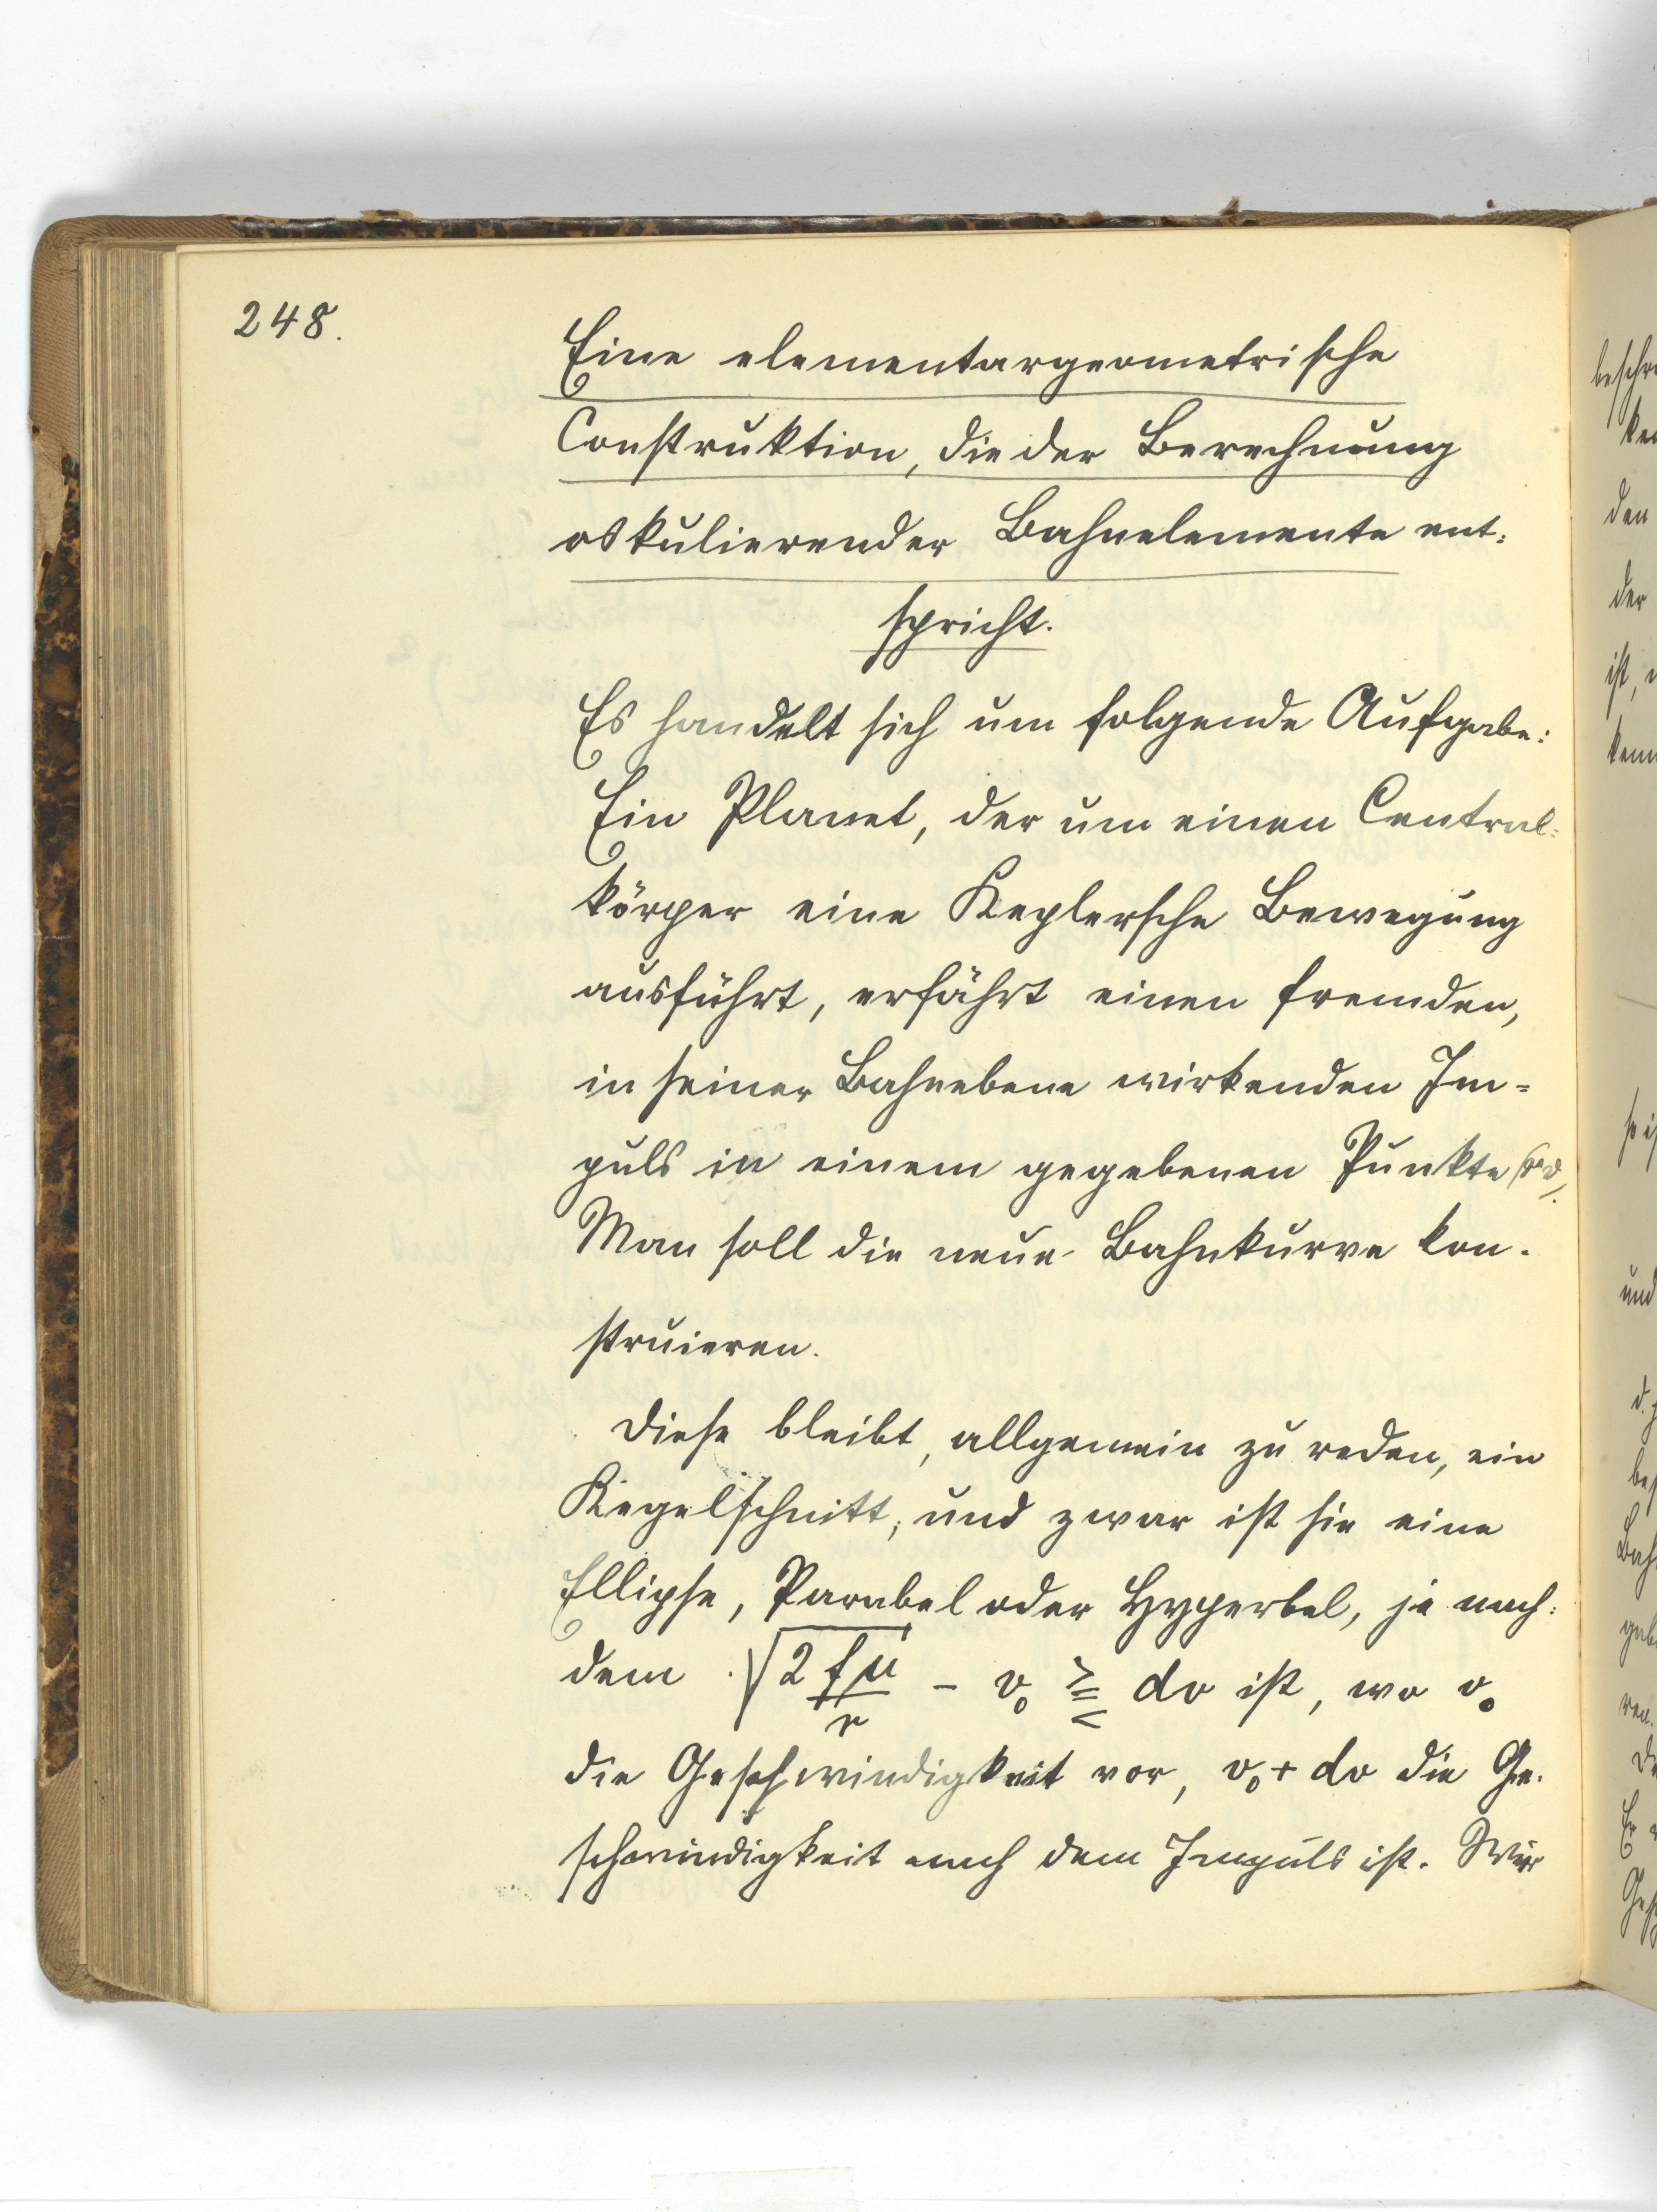 248.
Eine elementargeometrische
Construktion, die der Berechnung
oskulierender Bahnelemente ent:
spricht.
Es handelt sich um folgende Aufgabe:
Ein Planet, der um einen Central=
körper eine Keplersche Bewegung
ausführt, erfährt einen fremden,
in seiner Bahnebene wirkenden Im=
puls in einem gegebenen Punkte
Man soll die neue Bahnkurve kon-
struieren.
Diese bleibt, allgemein zu reden, ein
Kegelschnitt; und zwar ist sie eine
Ellipse, Parabel oder Hyperbel, je nach:
dem √(2 fμ/r) - v₀ ⋛ dv ist, wo v₀
die Geschwindigkeit vor, v₀ + dv die Ge-
schwindigkeit nach dem Impuls ist. Wir
beschr
den
der
ist,
und